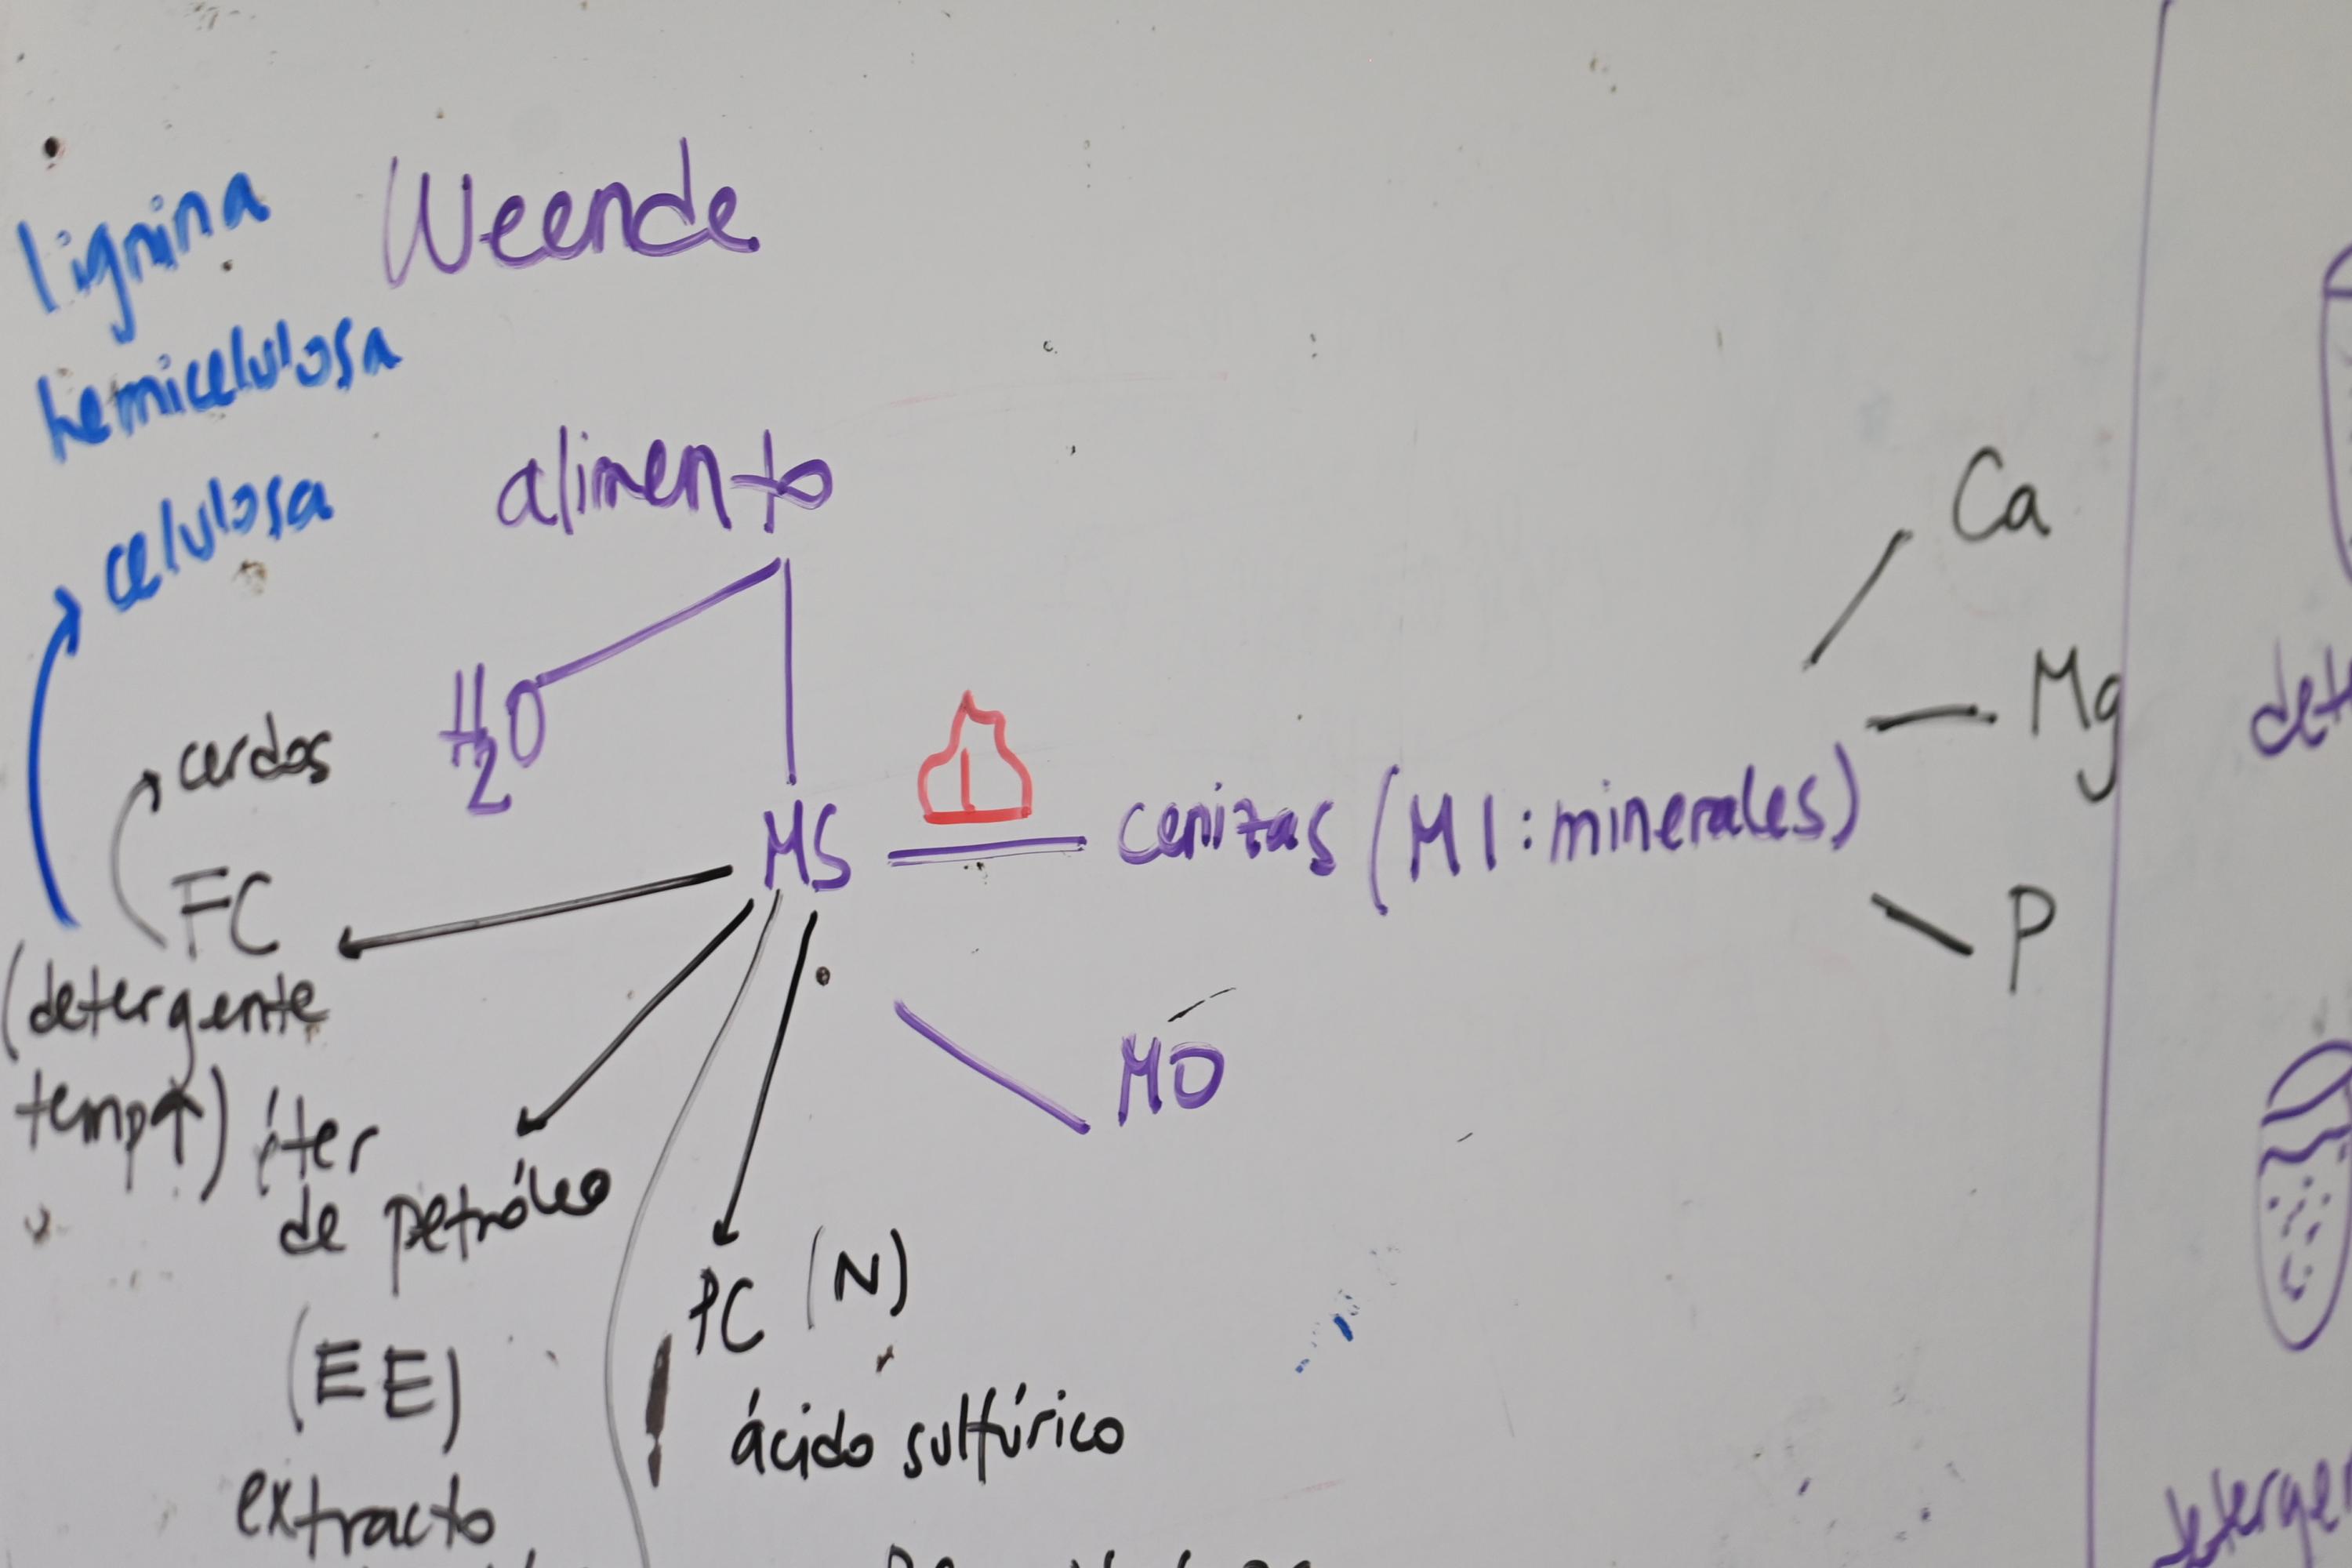 Weende
lignina
hemicelulosa
celulosa
alimento
H₂O
cerdos
FC
(detergente
temp↑)
MS
cenizas (MI: minerales)
Ca
Mg
P
MO
éter
de petróleo
(EE)
extracto
PC (N)
ácido sulfúrico